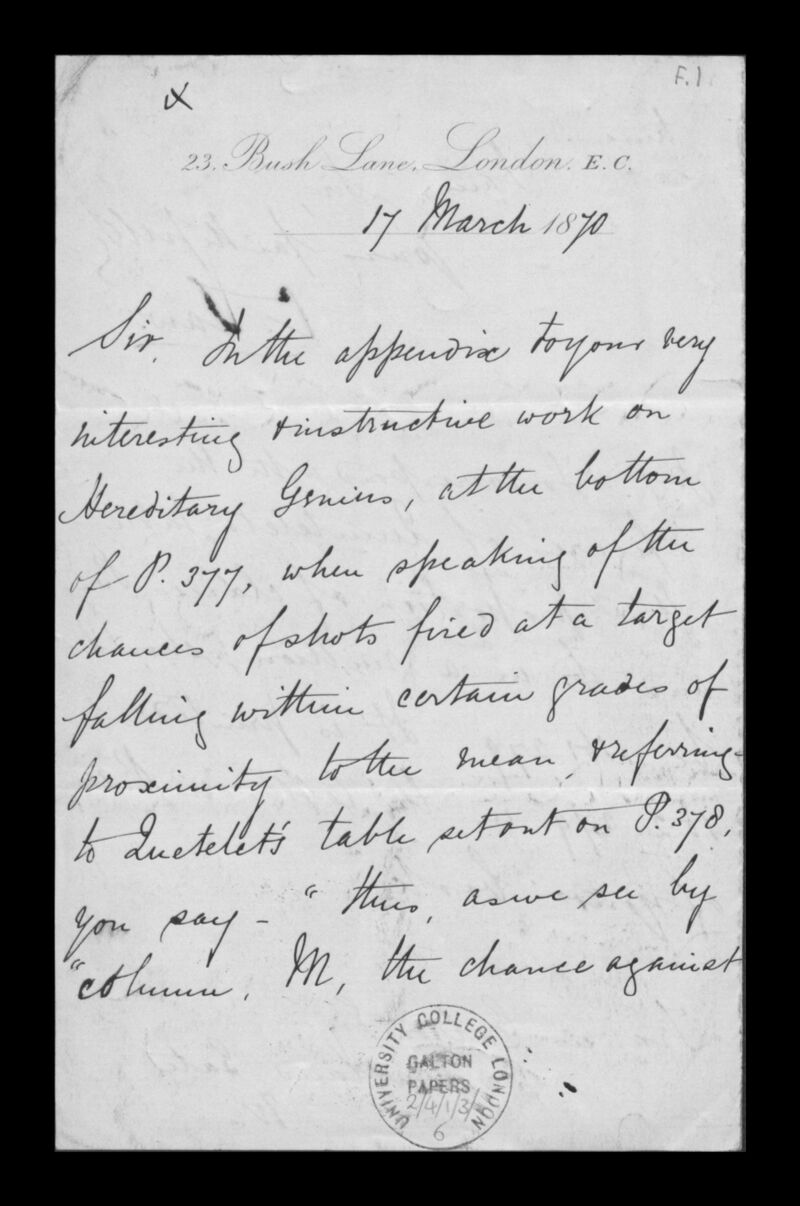 F.1
x
23, Bush Lane, London. E.C.
17 March 1870
Sir, In the appendix to your very
interesting & instructive work on
Hereditary Genius, at the bottom
of P. 377, when speaking of the
chances of shots fired at a target
falling within certain grades of
proximity to the mean, & referring
to Quetelet's table set out on P. 378,
you say - "thus, as we see by
"column, M, the chance against
UNIVERSITY COLLEGE LONDON
GALTON
PAPERS
2/4/1/3/
6